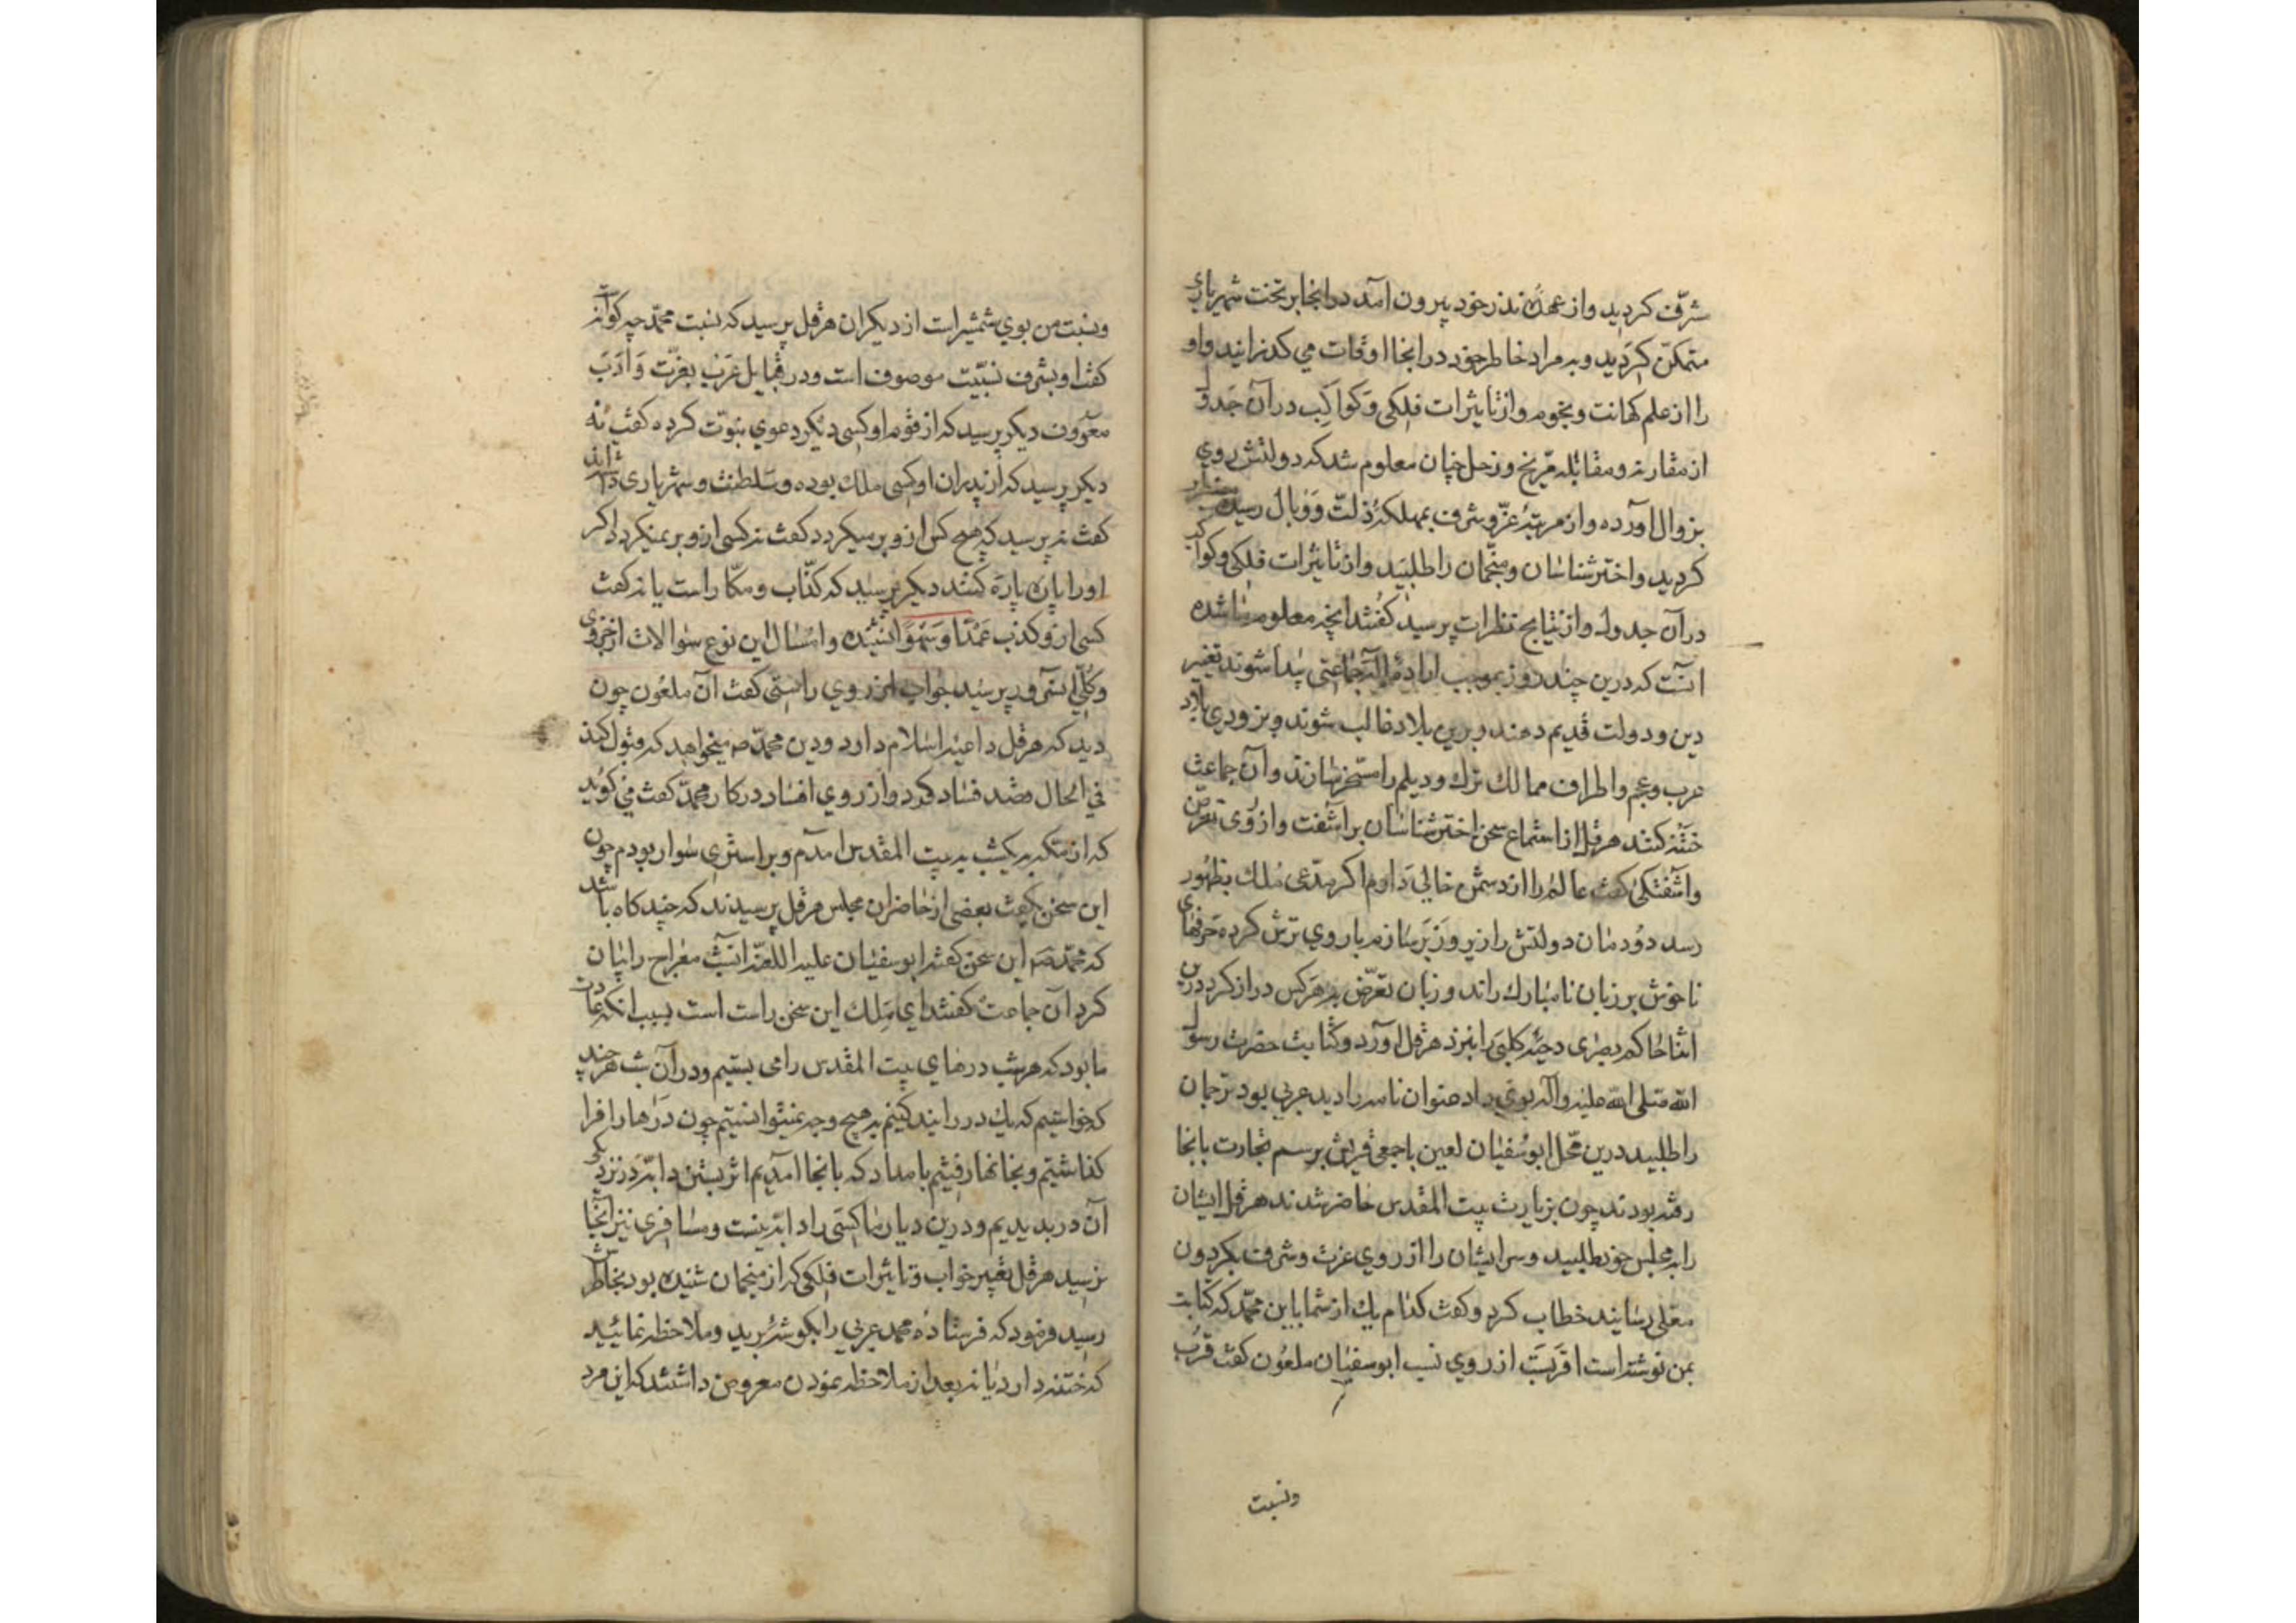 شرّف کردید و از عهدهٔ نذر خود بیرون آمد در انجا بر تخت شهریاری
متمکّن کردید و بر مراد خاطر خود در انجا اوقات می کذرانید و او
را از علم کهانت و نجوم و از تاثیرات فلکی و کواکب در آن جدول
از مقارنه و مقابله مرّیخ و زحل چنان معلوم شد که دولتش روی
بزوال آورده و از مرتبهٔ عزّ و شرف بمهلکهٔ ذلّت و وبال رسیده
کردید و اخترشناسان و منجّمان را طلبید و از تاثیرات فلکی و کواکب
در آن جدول و از نتایج نظرات پرسید کفتند انچه معلوم ما شده
انست که درین چند روز بموجب ارادهٔ اله جماعتی پیدا شوند تغییر
دین و دولت قدیم دهند و برین بلاد غالب شوند و بزودی بلاد
عرب و عجم و اطراف ممالک ترک و دیلم را مسخّر سازند و آن جماعت
ختنه کنند هرقل از استماع سخن اخترشناسان برآشفت و از روی
و آشفتکی کفت عالم را از دشمن خالی دارم اکر مدّعی ملک بظهور
رسد دودمان دولتش را زیر و زبر سازم با روی ترش کرده حرفهای
ناخوش بر زبان نامبارک راند و زبان تعرّض بر هر کس دراز کرد درین
اثنا حاکم بصری دحیه کلبی را بنزد هرقل آورد و کتابت حضرت رسول
الله صلی الله علیه و آله بوی داد عنوان نامه را دید عربی بود ترجمان
را طلبید درین محل ابوسفیان لعین با جمعی قریش برسم تجارت بانجا
رفته بودند چون بزیارت بیت المقدس حاضر شدند هرقل ایشان
را بمجلس خود طلبید و سر ایشان را از روی عزت و شرف بکردون
معلی رسانید خطاب کرد و کفت کدام یک از شما باین محمّد که کتابت
بمن نوشته است اقربست از روی نسب ابوسفیان ملعون کفت قرب
ونسبت
ونسبت من بوی بیشتراست از دیکران هرقل پرسید که نسبت محمّد چه کونه است
کفت او بشرف نسبت موصوف است و در قبایل عرب بعزّت و ادب
معروف دیکر پرسید که از قوم او کسی دیکر دعوی نبوّت کرده کفت نه
دیکر پرسید که از پدران او کسی ملک بوده و سلطنت و شهریاری
کفت نه پرسید که هیچ کس از و بر میکردد کفت نه کسی از و بر نمیکردد اکر
او را پاره پاره کنند دیکر پرسید که کذّاب و مکّار است یا نه کفت
کسی از و کذب عمدا و سهوا نشنیده و امثال این نوع سؤالات از جزوی
و کلّی پرسید جواب از روی راستی کفت آن ملعون چون
دید که هرقل داعیه اسلام دارد و دین محمّد ص میخواهد که قبول کند
فی الحال قصد فساد کرد و از روی افساد در کار محمّد کفت می کوید
که از مکه بیکشب به بیت المقدس امدم و بر استری سوار بودم چون
این سخن بکفت بعضی از حاضران مجلس هرقل پرسیدند که چند کاه باشد
که محمّد ص این سخن کفته ابوسفیان علیه اللعنة انشب معراج را بیان
کرد آن جماعت کفتند ای ملک این سخن راست است بسبب انکه عادت
ما بود که هر شب درهای بیت المقدس را می بستیم و در آن شب هر چند
که خواستیم که یک در را بند کنیم بهیچ وجه نمیتوانستیم چون درها را فرا
کذاشتیم و بخانها رفتیم بامداد که بانجا امدیم اثر بستن دابه در نزدیکی
آن در بدیدیم و درین دیار ما کسی را دابه نیست و مسافری نیز انجا
نرسید هرقل تعبیر خواب و تاثیرات فلکی که از منجمان شنیده بود بخاطرش
رسید فرمود که فرستاده محمد عربی را بکوشه برید و ملاحظه نمائید
که ختنه دارد یا نه بعد از ملاحظه نمودن معروض داشتند که این مرد